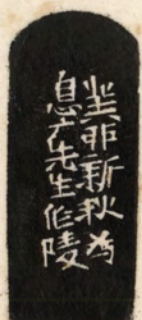 癸卯新秋為
息广先生作陵